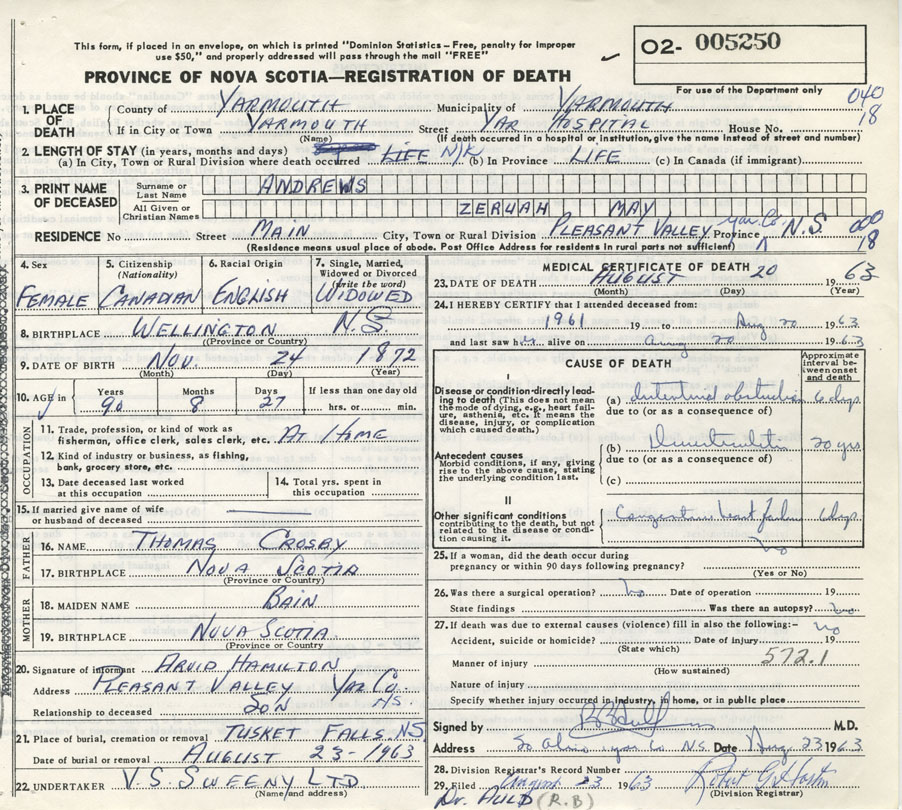 This form, if placed in an envelope, on which is printed "Dominion Statistics – Free, penalty for improper
use $50," and properly addressed will pass through the mail "FREE"
O2- 005250
For use of the Department only
PROVINCE OF NOVA SCOTIA—REGISTRATION OF DEATH
040
18
1. PLACE OF DEATH County of YARMOUTH Municipality of YARMOUTH
If in City or Town YARMOUTH Street YAR HOSPITAL House No.
(Name) (If death occurred in a hospital or institution, give the name instead of street and number)
2. LENGTH OF STAY (in years, months and days)
(a) In City, Town or Rural Division where death occurred LIFE N/K (b) In Province LIFE (c) In Canada (if immigrant)
3. PRINT NAME OF DECEASED Surname or Last Name ANDREWS
All Given or Christian Names ZERUAH MAY
RESIDENCE No Street MAIN City, Town or Rural Division PLEASANT VALLEY Yar. Co. Province N.S. 000
18
(Residence means usual place of abode. Post Office Address for residents in rural parts not sufficient)
4. Sex FEMALE
5. Citizenship (Nationality) CANADIAN
6. Racial Origin ENGLISH
7. Single, Married, Widowed or Divorced (Write the word) WIDOWED
8. BIRTHPLACE WELLINGTON N.S.
(Province or Country)
9. DATE OF BIRTH NOV. 24 1872
(Month) (Day) (Year)
10. AGE in Years 90 Months 8 Days 27 If less than one day old hrs. or min.
OCCUPATION
11. Trade, profession, or kind of work as fisherman, office clerk, sales clerk, etc. AT HOME
12. Kind of industry or business, as fishing, bank, grocery store, etc.
13. Date deceased last worked at this occupation
14. Total yrs. spent in this occupation
15. If married give name of wife or husband of deceased
FATHER
16. NAME THOMAS CROSBY
17. BIRTHPLACE NOVA SCOTIA
(Province or Country)
MOTHER
18. MAIDEN NAME BAIN
19. BIRTHPLACE NOVA SCOTIA
(Province or Country)
20. Signature of informant ARVID HAMILTON
Address PLEASANT VALLEY YAR CO. NS.
Relationship to deceased SON
21. Place of burial, cremation or removal TUSKET FALLS, NS
Date of burial or removal AUGUST 23 - 1963
22. UNDERTAKER V. S. SWEENY LTD
(Name and address)
MEDICAL CERTIFICATE OF DEATH
23. DATE OF DEATH AUGUST 20 1963
(Month) (Day) (Year)
24. I HEREBY CERTIFY that I attended deceased from:
1961 19 to Aug 20 1963
and last saw her alive on Aug 20 1963
CAUSE OF DEATH
Approximate interval between onset and death
I
Disease or condition directly leading to death (This does not mean the mode of dying, e.g., heart failure, asthenia, etc. It means the disease, injury, or complication which caused death.)
(a) intestinal obstruction 6 days
due to (or as a consequence of)
Antecedent causes
Morbid conditions, if any, giving rise to the above cause, stating the underlying condition last.
(b) Diverticulitis 20 yrs
due to (or as a consequence of)
(c)
II
Other significant conditions contributing to the death, but not related to the disease or condition causing it.
Congestive heart failure 6 days
25. If a woman, did the death occur during pregnancy or within 90 days following pregnancy? No
(Yes or No)
26. Was there a surgical operation? No Date of operation 19
State findings Was there an autopsy? No
27. If death was due to external causes (violence) fill in also the following:– no
Accident, suicide or homicide? Date of injury 19
(State which)
Manner of injury 572.1
(How sustained)
Nature of injury
Specify whether injury occurred in industry, in home, or in public place
Signed by M.D.
Address Yar Co N.S. Date Aug 23 1963
28. Division Registrar's Record Number
29. Filed August 23 1963
(Division Registrar)
Dr. AULD (R.B)